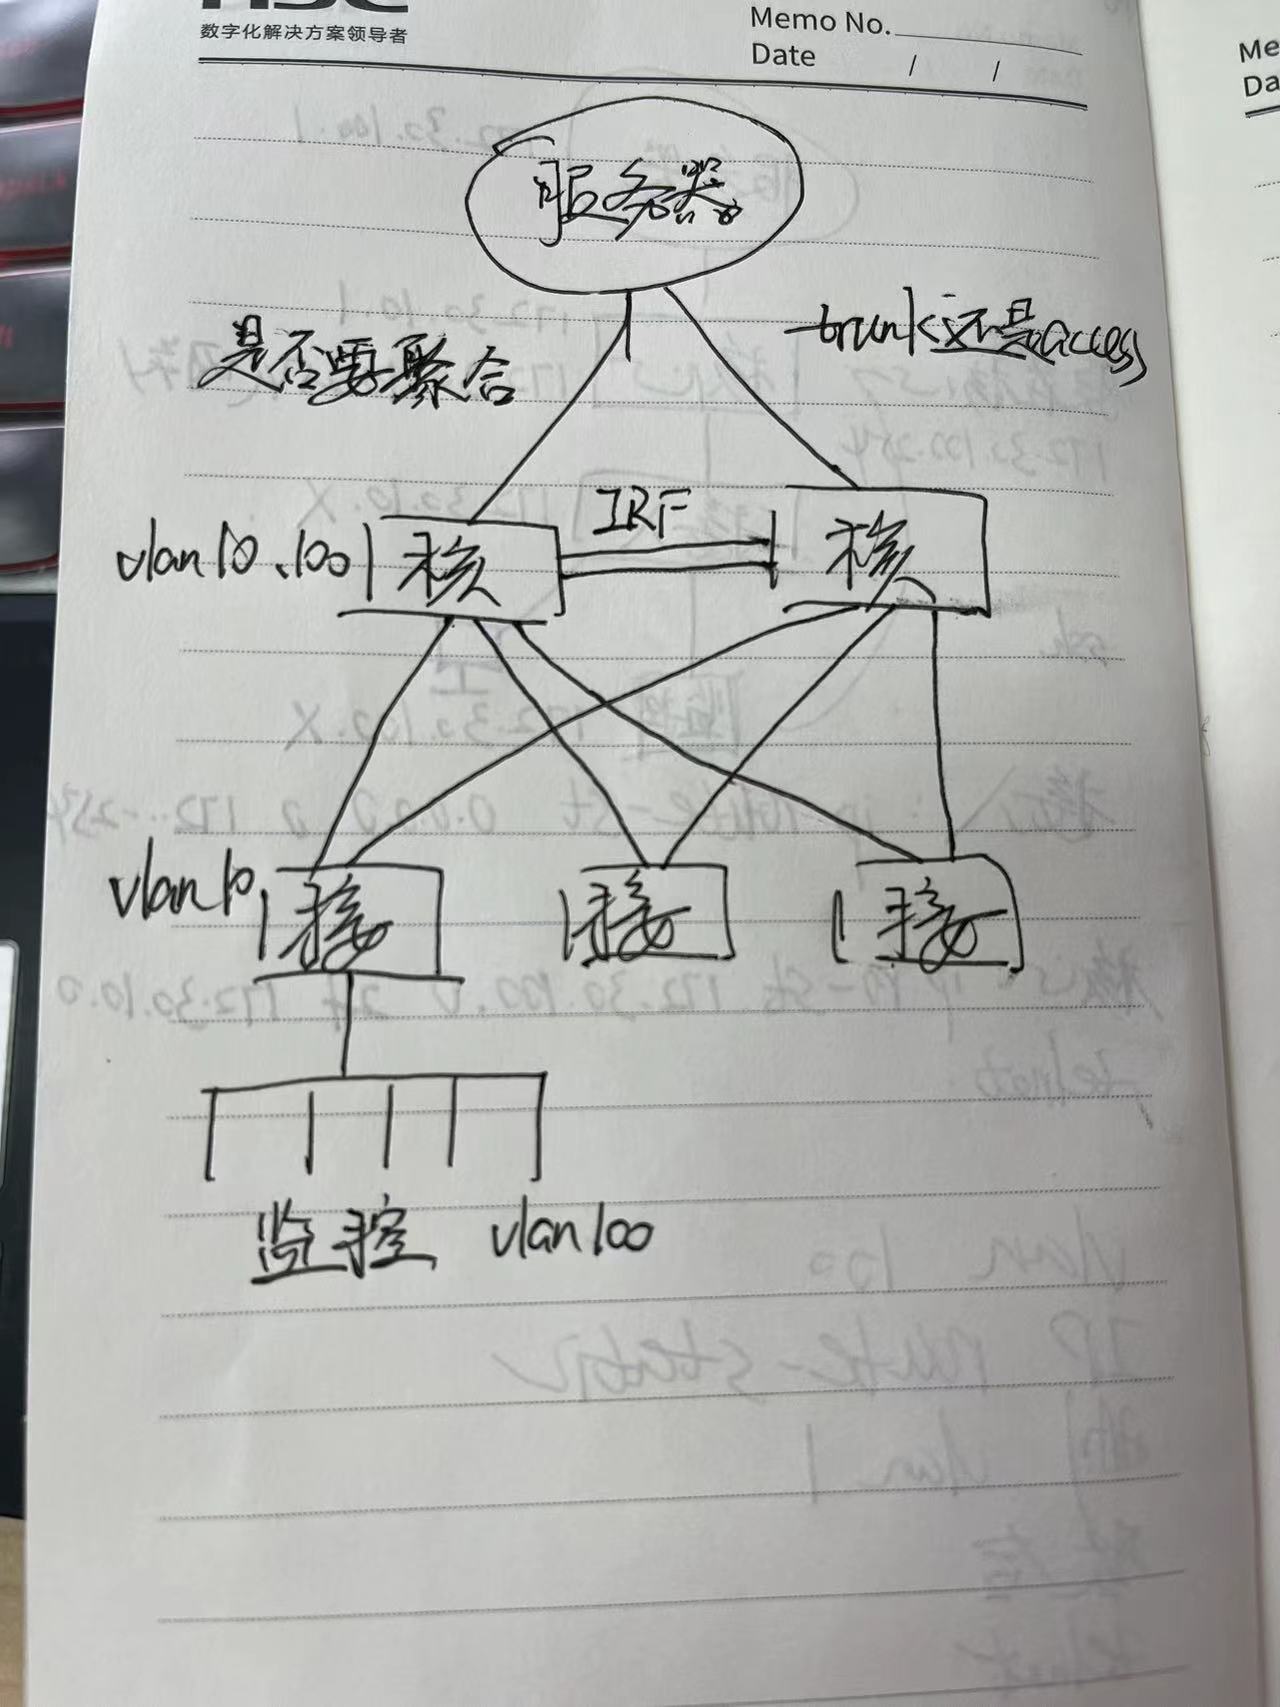 数字化解决方案领导者
Memo No.
Date / /
Me
Da
服务器
是否要聚合
trunk还是access
IRF
vlan10、100
核
核
vlan10
接
接
接
监控 vlan100